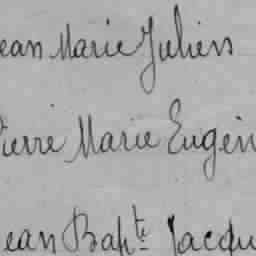 ean Marie Julien
ierre Marie Eugèn
ean Bapte Jacqu